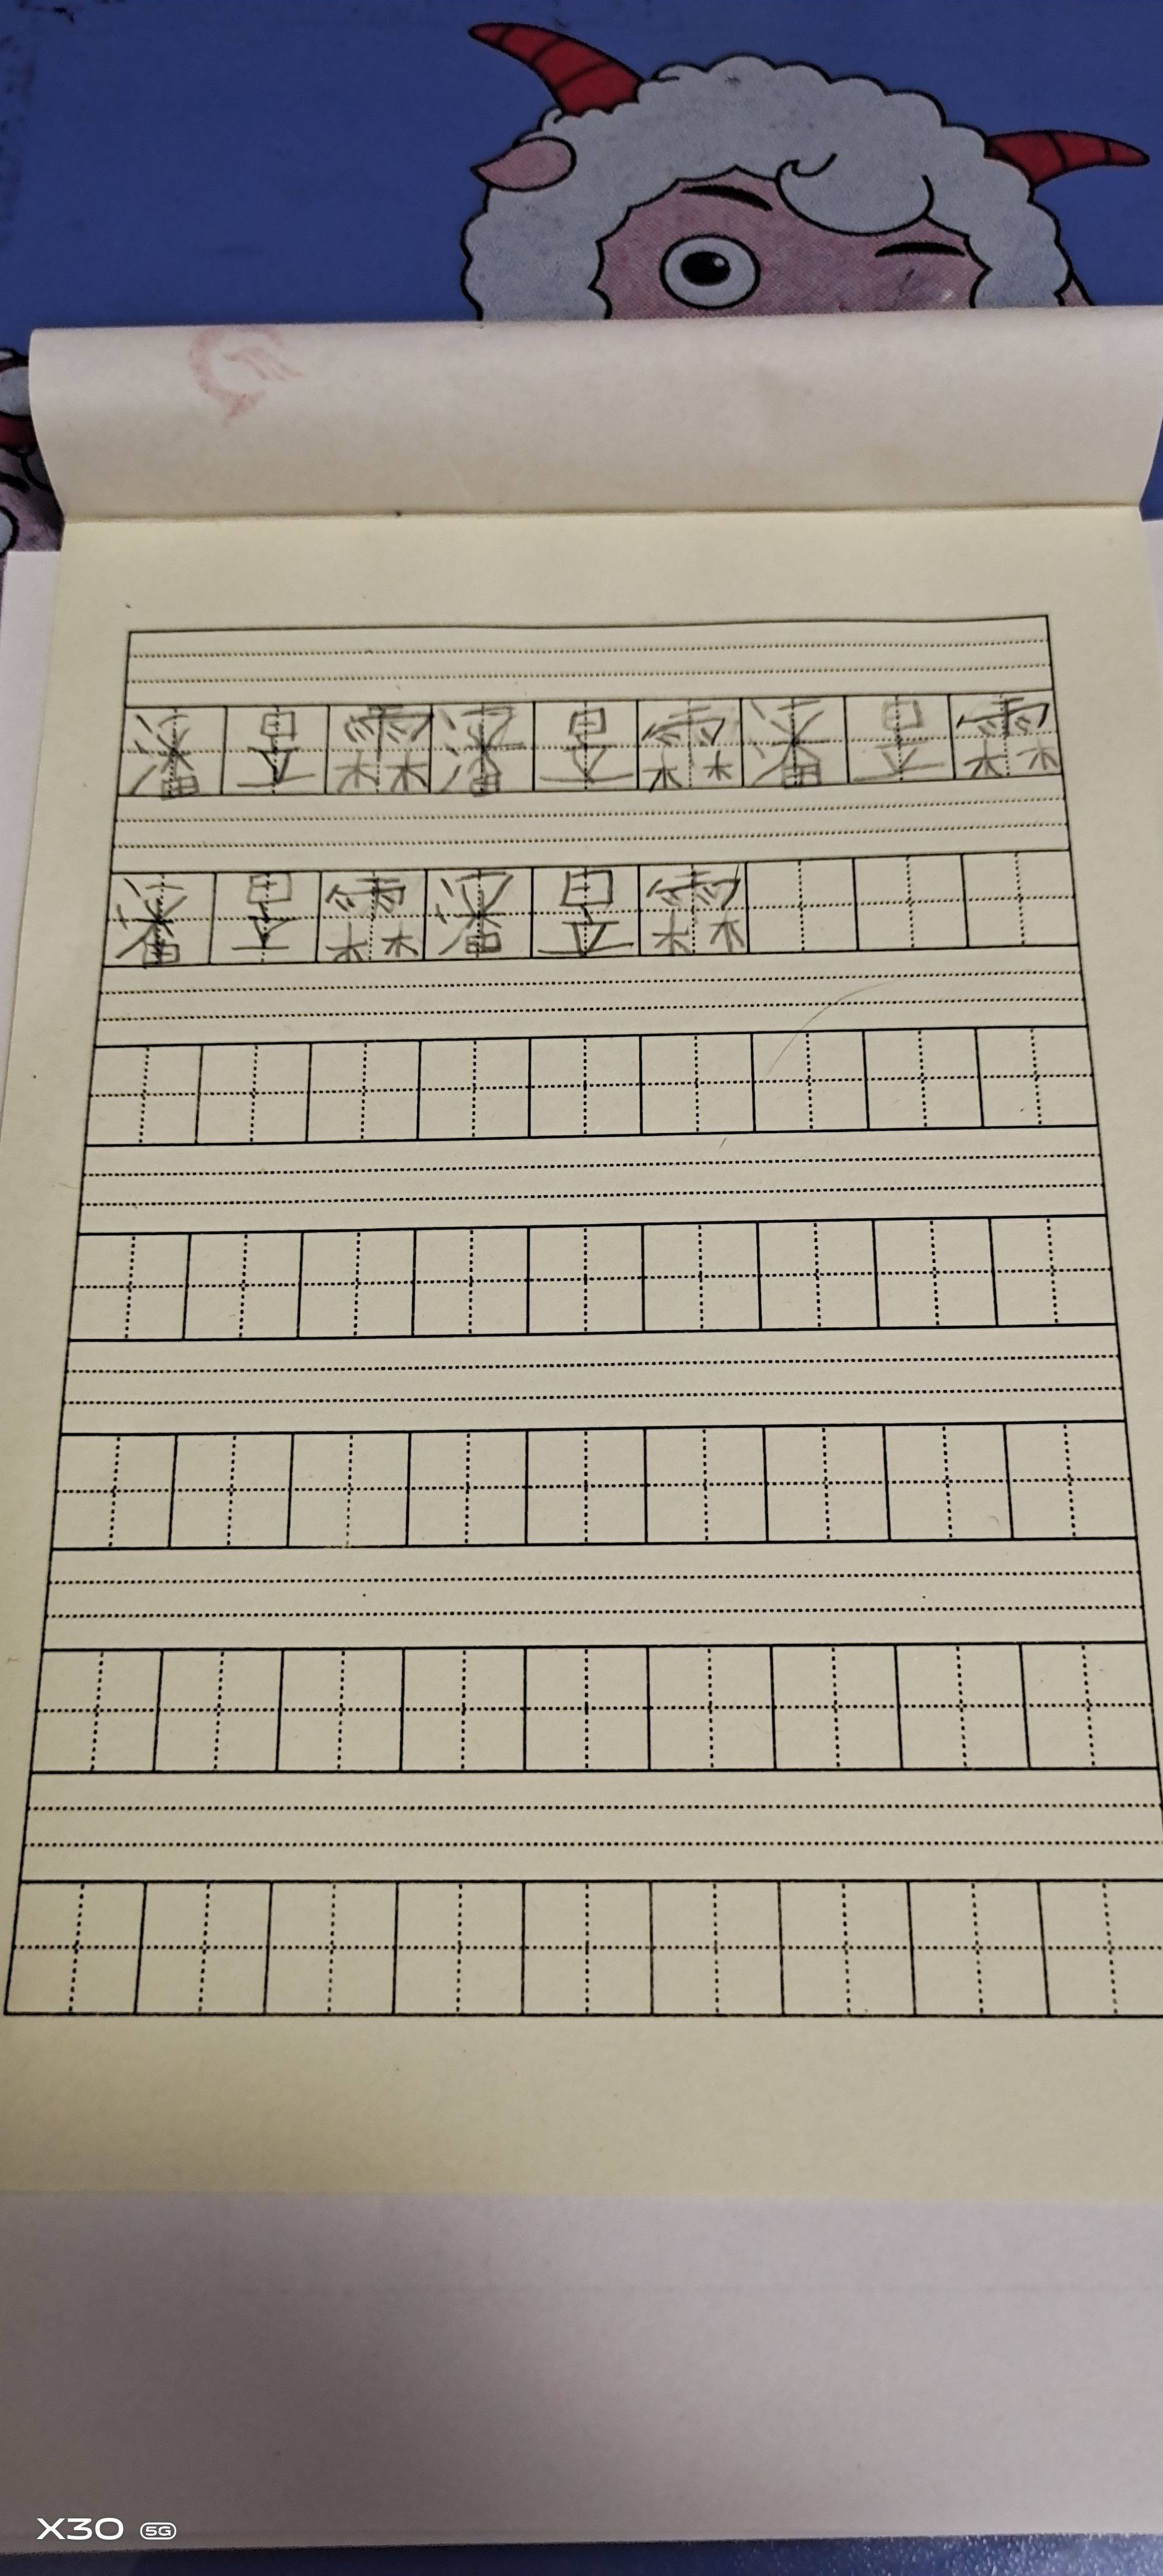 潘昱霖潘昱霖潘昱霖
潘昱霖潘昱霖
X30 5G